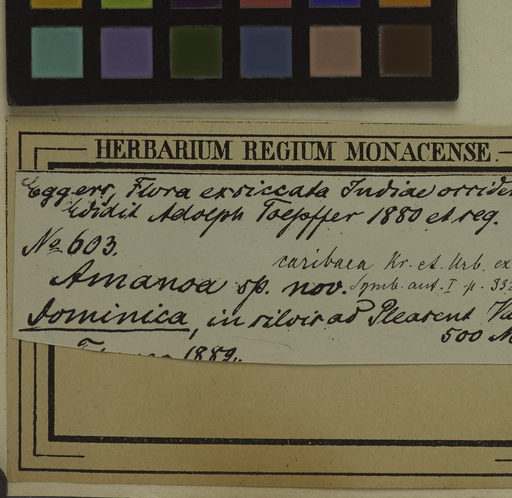 HERBARIUM REGIUM MONACENSE.
Eggers, Flora exsiccata Indiae occiden
Edidit Adolph Toepffer 1880 et seq.
No 603.
caribaea Kr. et. Urb. ex
Amanoa sp. nov. Symb. ant. I p. 332
Dominica, in silvis ad Pleasent Va
500 M
1882.